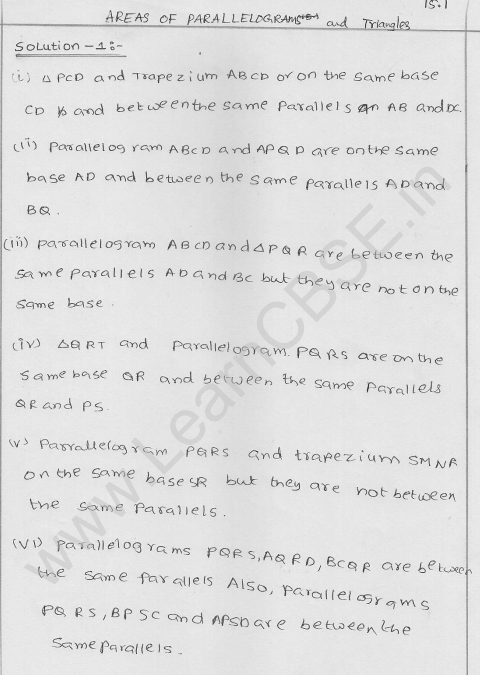 15.1
AREAS OF PARALLELOGRAMS and Triangles
Solution -1:-
(i) △ PCD and Trapezium ABCD or on the same base
CD and between the same Parallels AB and DC.
(ii) Parallelog ram ABCD and APQD are on the same
base AD and between the same parallels AD and
BQ.
(iii) parallelogram ABCD and △PQR are between the
same parallels AD and BC but they are not on the
same base.
(iv) △QRT and Parallelogram. PQRS are on the
same base QR and between the same parallels
QR and PS.
(v) Parrallelogram PQRS and trapezium SMNR
on the same base SR but they are not between
the same Parallels.
(VI) Parallelograms PQRS, AQRD, BCQR are between
the same parallels Also, parallelograms
PQRS, BPSC and APSD are between the
same parallels.
www.LearnCBSE.in